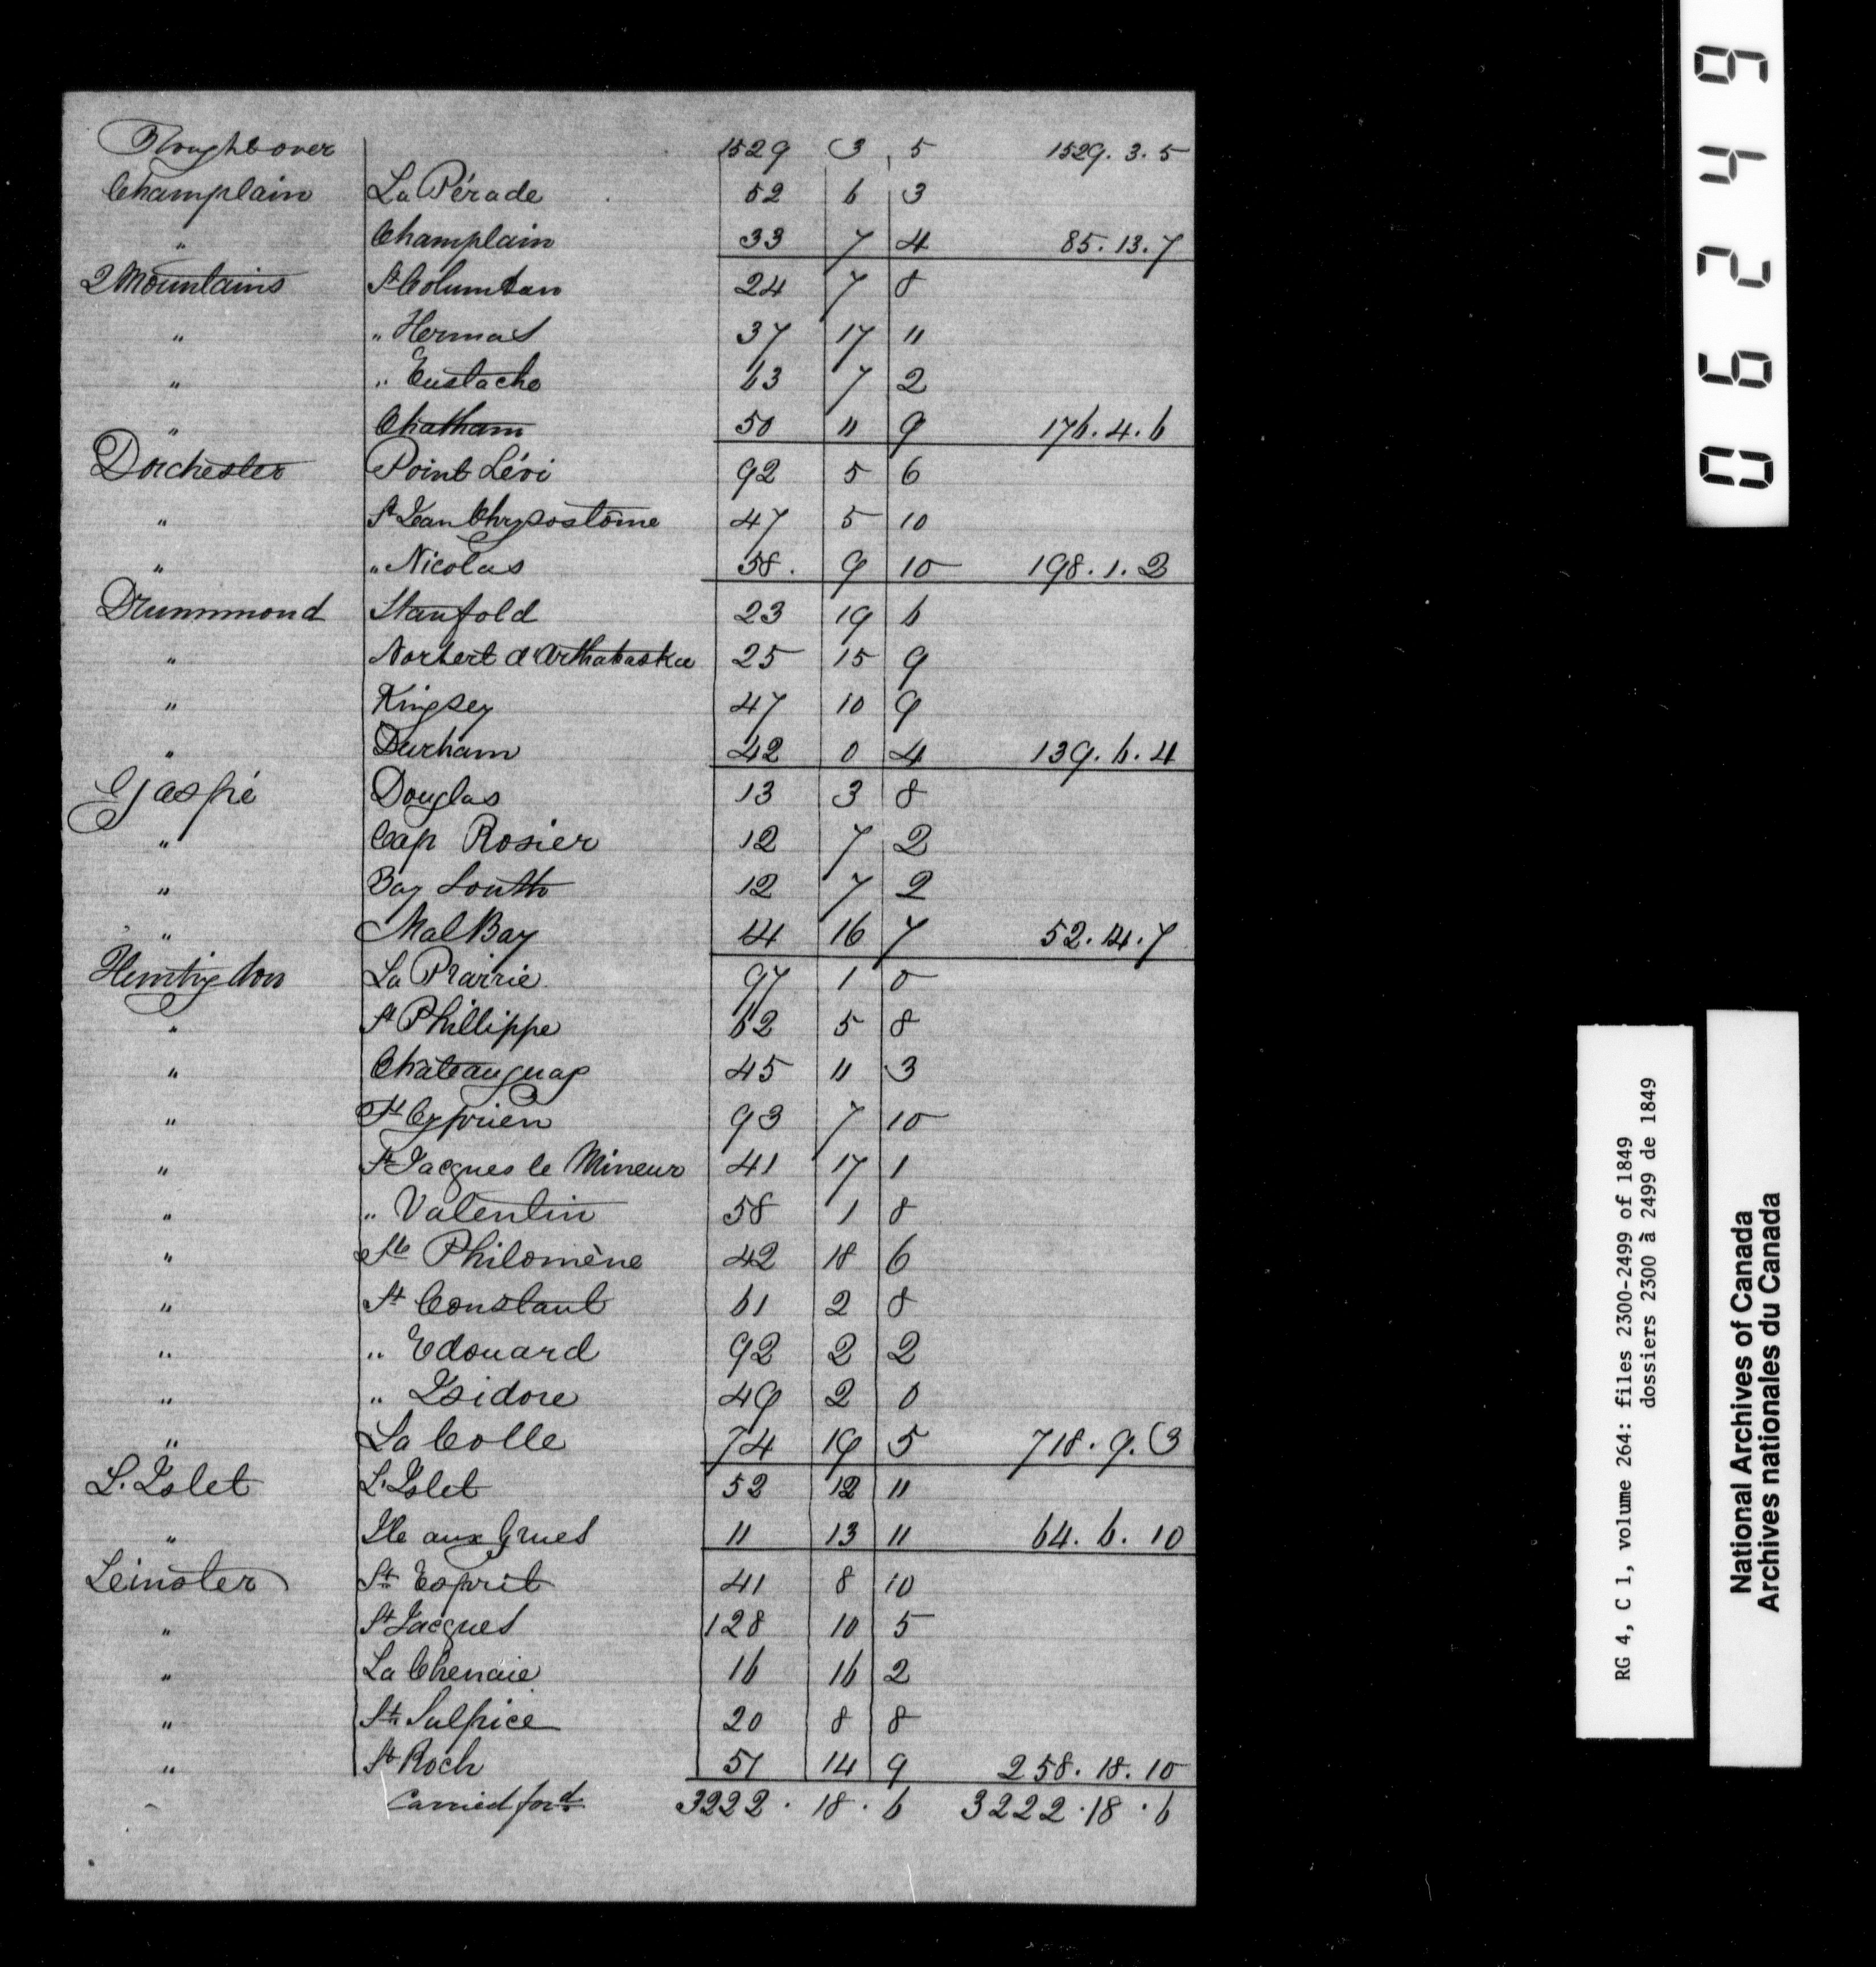 Brought over 1529 3 5 1529.3.5
Champlain La Pérade 52 6 3
" Champlain 33 7 4 85.13.7
2 Mountains St Columban 24 7 8
" " Hermas 37 17 11
" " Eustache 63 7 2
" Chatham 50 11 9 176.4.6
Dorchester Point Lévi 92 5 6
" St Jean Chrysostôme 47 5 10
" " Nicolas 58. 9 10 198.1.2
Drummond Stanfold 23 19 6
" Norbert d'Arthabaska 25 15 9
" Kingsey 47 10 9
" Durham 42 0 4 139.6.4
Gaspé Douglas 13 3 8
" Cap Rosier 12 7 2
" Bay South 12 7 2
" Mal Bay 14 16 7 52.14.7
Huntigdon La Prairie 97 1 0
" St Phillippe 62 5 8
" Châteauguay 45 11 3
" St Cyprien 93 7 10
" St Jacques le Mineur 41 17 1
" " Valentin 58 1 8
" Ste Philomène 42 18 6
" St Constant 61 2 8
" " Edouard 92 2 2
" " Isidore 49 2 0
" La Colle 74 19 5 718.9.3
L'Islet L'Islet 52 12 11
" Ile aux Grues 11 13 11 64.6.10
Leinster St Esprit 41 8 10
" St Jacques 128 10 5
" La Chenaie 16 16 2
" St Sulpice 20 8 8
" St Roch 51 14 9 258.18.10
Carried ford 3222.18.6 3222.18.6
06249
RG 4, C 1, volume 264: files 2300-2499 of 1849
dossiers 2300 à 2499 de 1849
National Archives of Canada
Archives nationales du Canada